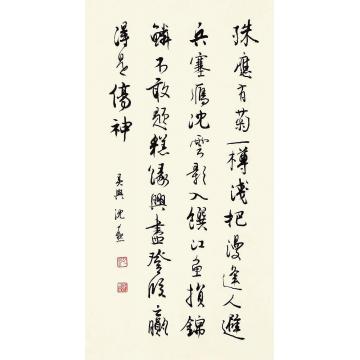 殊應有菊一樽淺把漫逢人避
兵塞雁沈雲影入饌江魚損錦
鱗不敢題糕緣興盡登臨贏
得是傷神
吳興沈